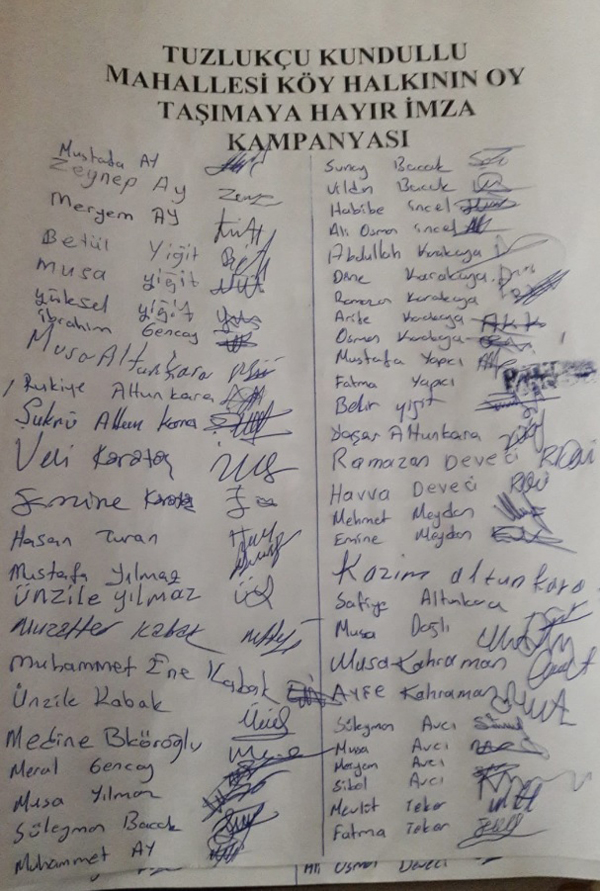 TUZLUKÇU KUNDULLU
MAHALLESİ KÖY HALKININ OY
TAŞIMAYA HAYIR İMZA
KAMPANYASI
Mustafa AY
Zeynep Ay
Meryem AY
Betül Yiğit
Musa yiğit
yüksel yiğit
ibrahim Gencay
Musa Altunkara
Rukiye Altunkara
Şukrü Altunkara
Veli Karataş
Emine Karataş
Hasan Turan
Mustafa Yılmaz
ÜNZİLE YILMAZ
Muzaffer Kabak
Muhammet Ene Kabak
Ünzile Kabak
Medine Bköroğlu
Meral Gencay
Musa Yılmaz
Süleyman Bacak
Muhammet AY
Suray Bacak
Vildn Bacak
Habibe İncel
Ali Osman İncel
Abdullah Karakaya
Döne Karakaya
Ramazan Karakaya
Arife Karakaya
Osman Karakaya
Mustafa Yapcı
Fatma Yapcı
Bekir yiğit
Yaşar Altunkara
Ramazan Deveci
Havva Deveci
Mehmet Maydan
Emine Maydan
Kazim altunkara
Safiye Altunkara
Musa Daşlı
Musa Kahraman
Ayşe Kahraman
Süleyman Avcı
Musa Avcı
Meryem Avcı
Sibel Avcı
Mevlüt Tekar
Fatma Tekar
Ali Osman Deveci